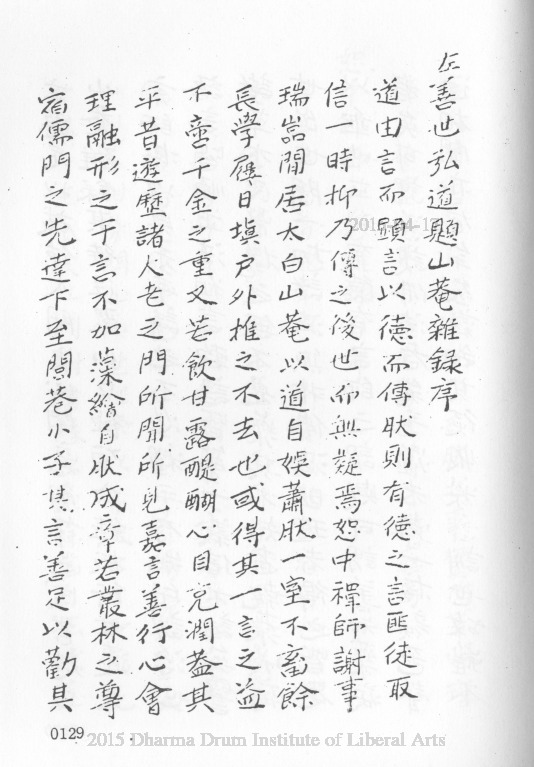 左善世弘道題山菴雜録序
道由言而顕言以德而傳肰則有德之言匪徒取
信一時抑乃傳之後世而無疑焉恕中禅師謝事
瑞嵓閒居太白山菴以道自娛蕭肰一室不畜餘
長學屨日塡户外推之不去也或得其一言之益
不啻千金之重又若飲甘露醍醐心目充潤葢其
平昔遊歷諸人老之門所聞所見嘉言善行心會
理融形之于言不加藻繪自肰成章若叢林之尊
宿儒門之先達下至閭巷小子其言善足以勸其
0129
2015 Dharma Drum Institute of Liberal Arts